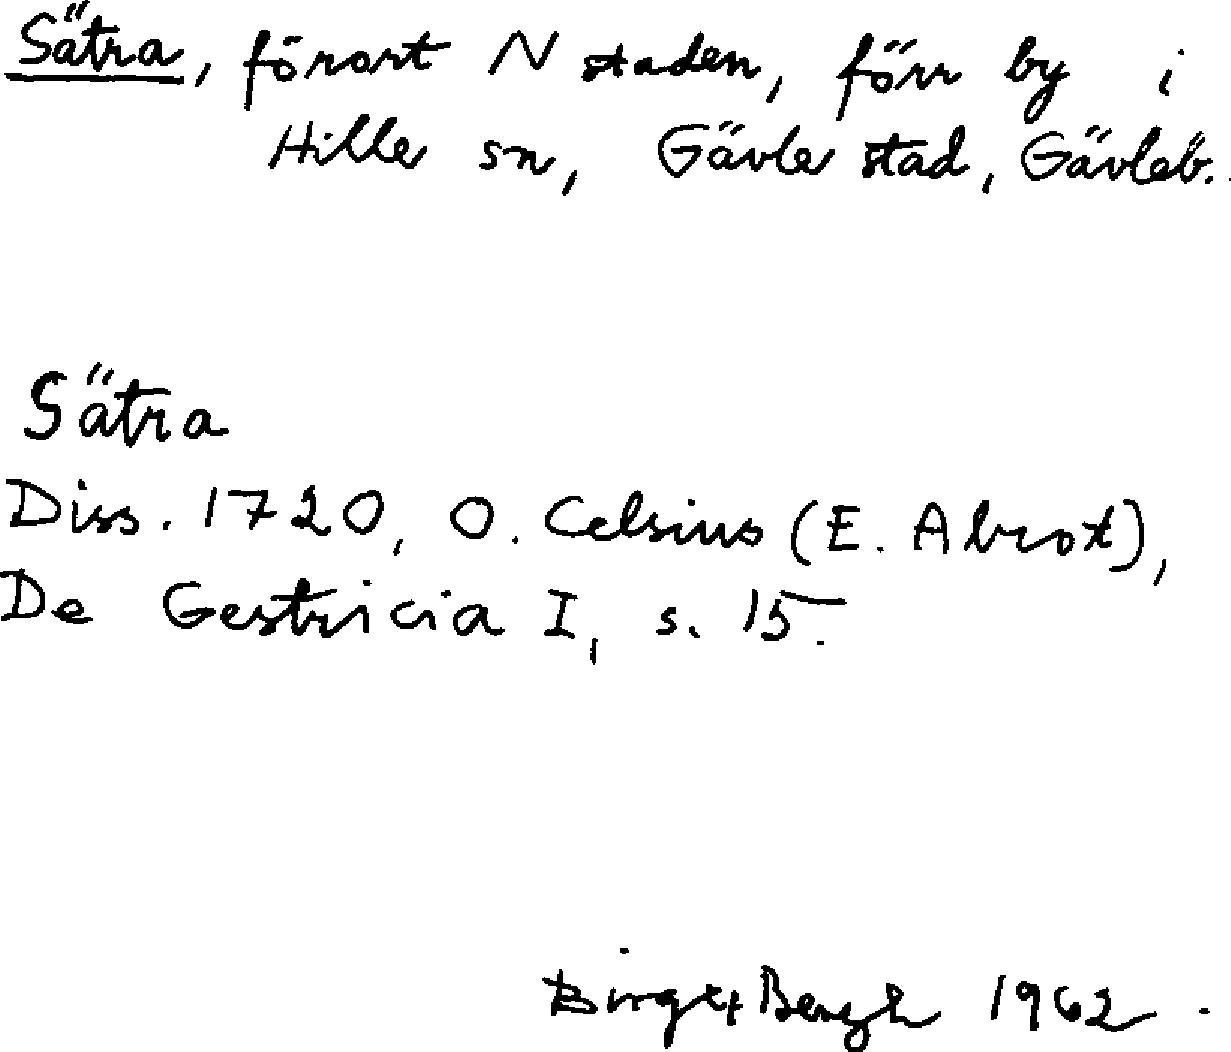 Sätra, förort N staden, förr by i
Hille sn, Gävle stad, Gävleb.
Sätra
Diss. 1720, O. Celsius (E. Abrot),
De Gestricia I, s. 15.
Birger Bergh 1962.